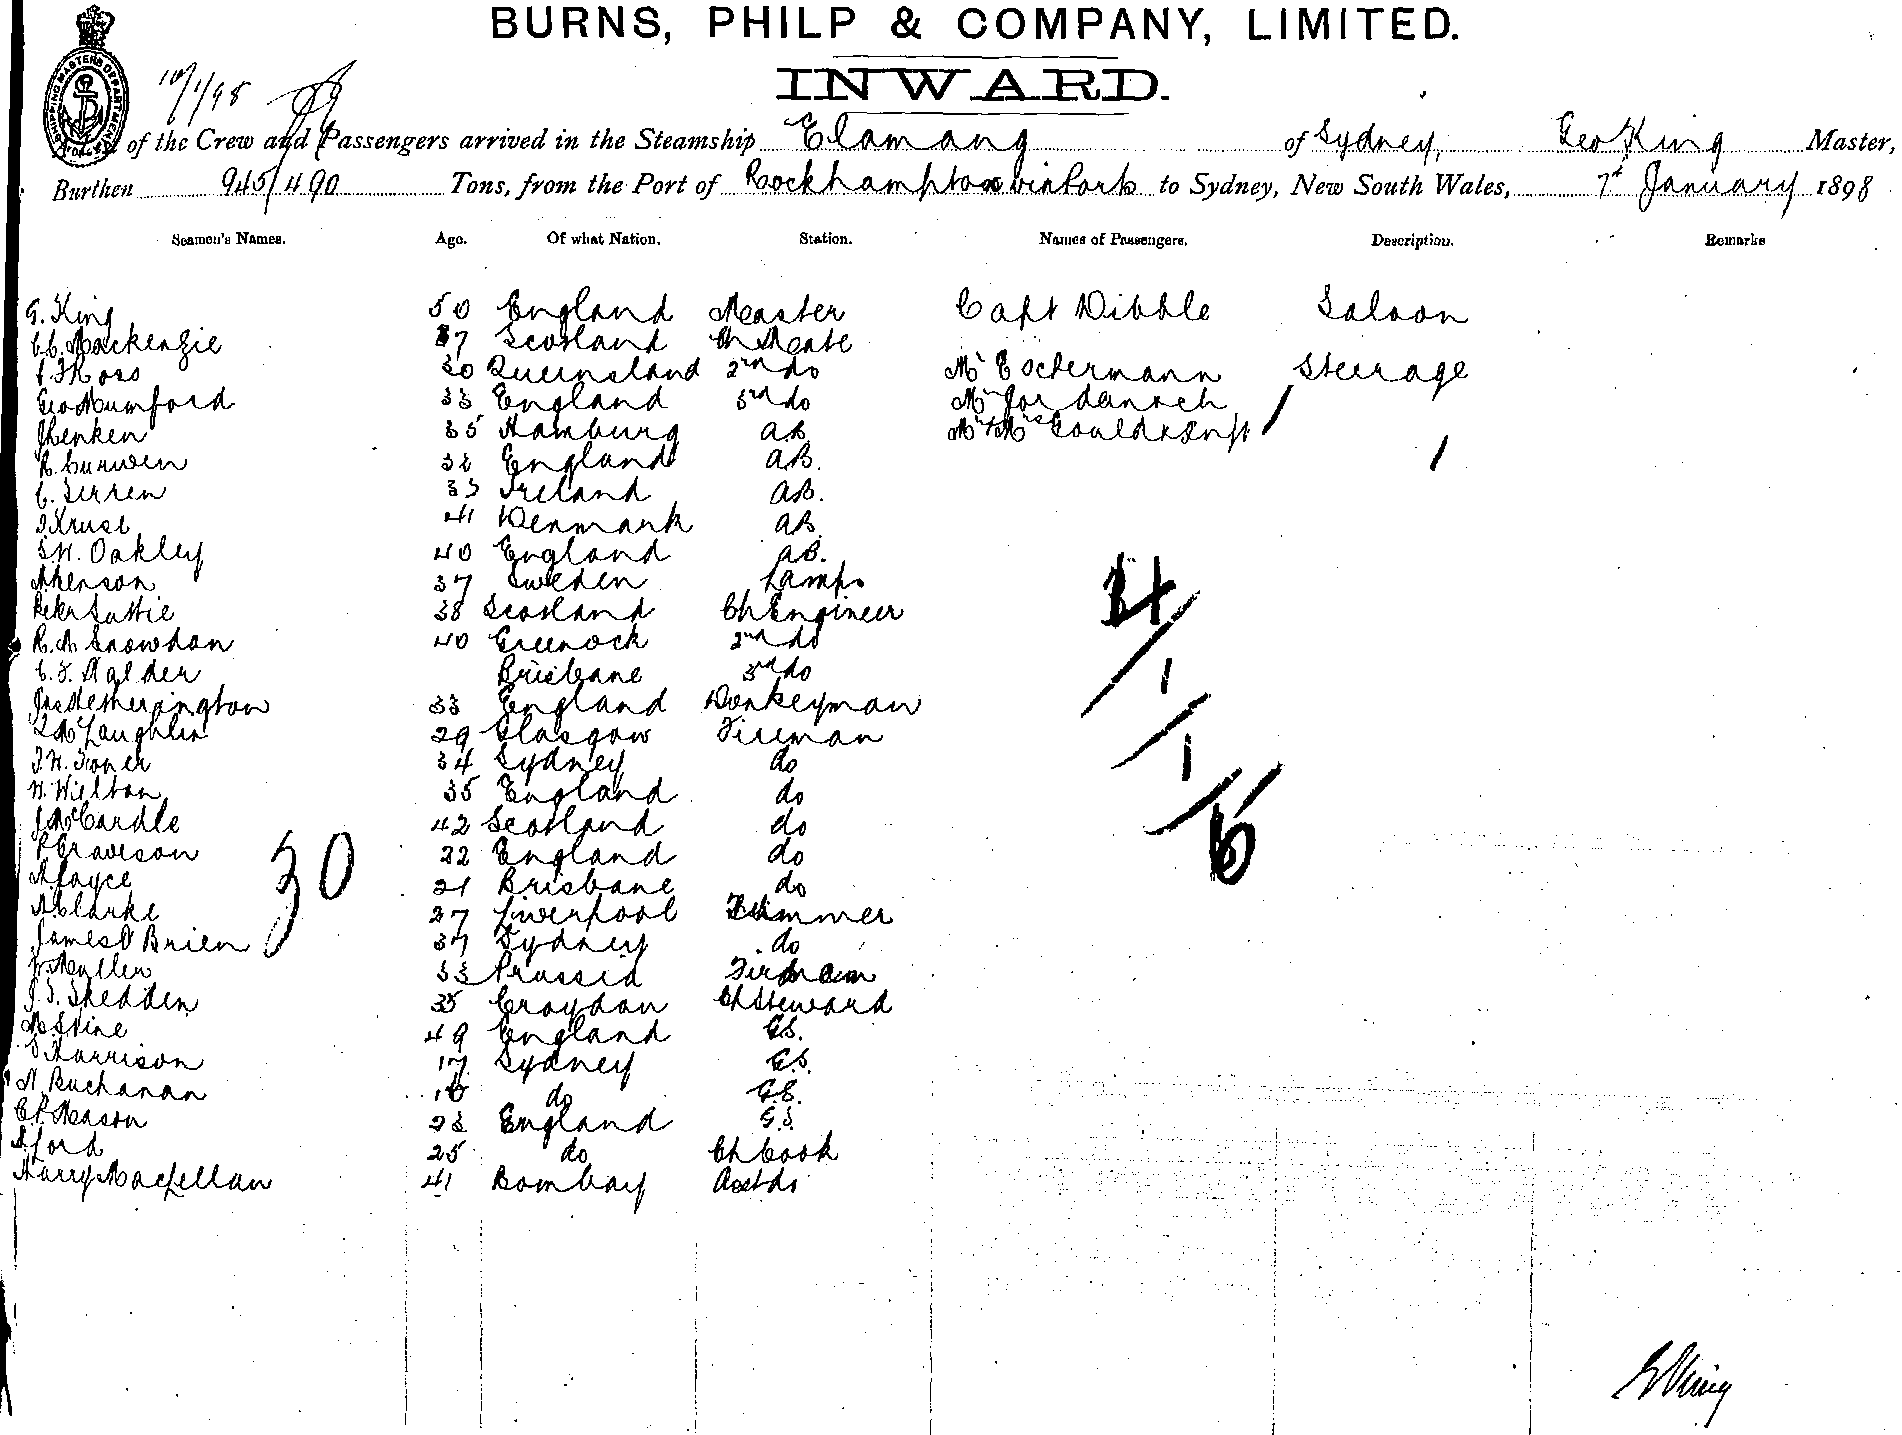 BURNS, PHILP & COMPANY, LIMITED.
INWARD.
SHIPPING MASTERS DEPARTMENT
10/1/98
of the Crew and Passengers arrived in the Steamship Elamang of Sydney, Geo King Master,
Burthen 945/490 Tons, from the Port of Rockhampton via Ports to Sydney, New South Wales, 7th January 1898
Seamen's Names. Age. Of what Nation. Station. Names of Passengers. Description. Remarks
G. King 50 England Master Capt Dibble Saloon
Mackenzie 37 Scotland Ch Mate
Ross 30 Queensland 2nd do Mr E Ockermann Steerage
Geo Mumford 33 England 3rd do Mr
35 Hamburg AB Mr & Mrs Gould & Inft
R. Curwen 32 England AB.
33 Ireland AB.
Kruse 41 Denmark AB
S.W. Oakley 40 England AB.
37 Sweden Lamps
Peter Suttie 38 Scotland Ch Engineer
R. A Snowdon 40 Greenock 2nd do
Brisbane 3rd do
Jas Hetherington 33 England Donkeyman
McLaughlin 29 Glasgow Fireman
34 Sydney do
W. Wilton 35 England do
J McCardle 42 Scotland do
P Graveson 22 England do
A Cayce 21 Brisbane do
A Clarke 27 Liverpool Trimmer
James O Brien 37 Sydney do
Muller 33 Prussia Fireman
J. S. Shedden 35 Croydon Ch Steward
49 England G.S.
Harrison 17 Sydney G.S.
A. Buchanan do G.S.
C. P. Meason 23 England G.S.
A. Ford 25 do Ch Cook
Harry MacLellan 41 Bombay Asst do
30
4/1/1/6
G King